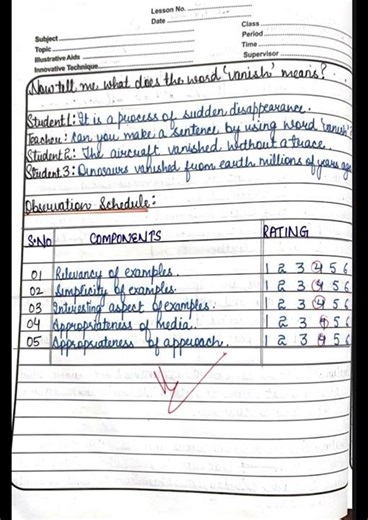 Lesson No.
Date
Class
Subject
Period
Topic
Time
Illustrative Aids
Supervisor
Innovative Technique
Now tell me what does the word 'vanish' means?
Student 1: It is a process of sudden disappearance.
Teacher: Can you make a sentence by using word 'vanish'
Student 2: The aircraft vanished without a trace.
Student 3: Dinosaurs vanished from earth millions of years ago
Observation Schedule:
S.No COMPONENTS RATING
01 Relevancy of examples. 1 2 3 4 5 6
02 Simplicity of examples. 1 2 3 4 5 6
03 Interesting aspect of examples. 1 2 3 4 5 6
04 Appropriateness of media. 1 2 3 4 5 6
05 Appropriateness of approach. 1 2 3 4 5 6